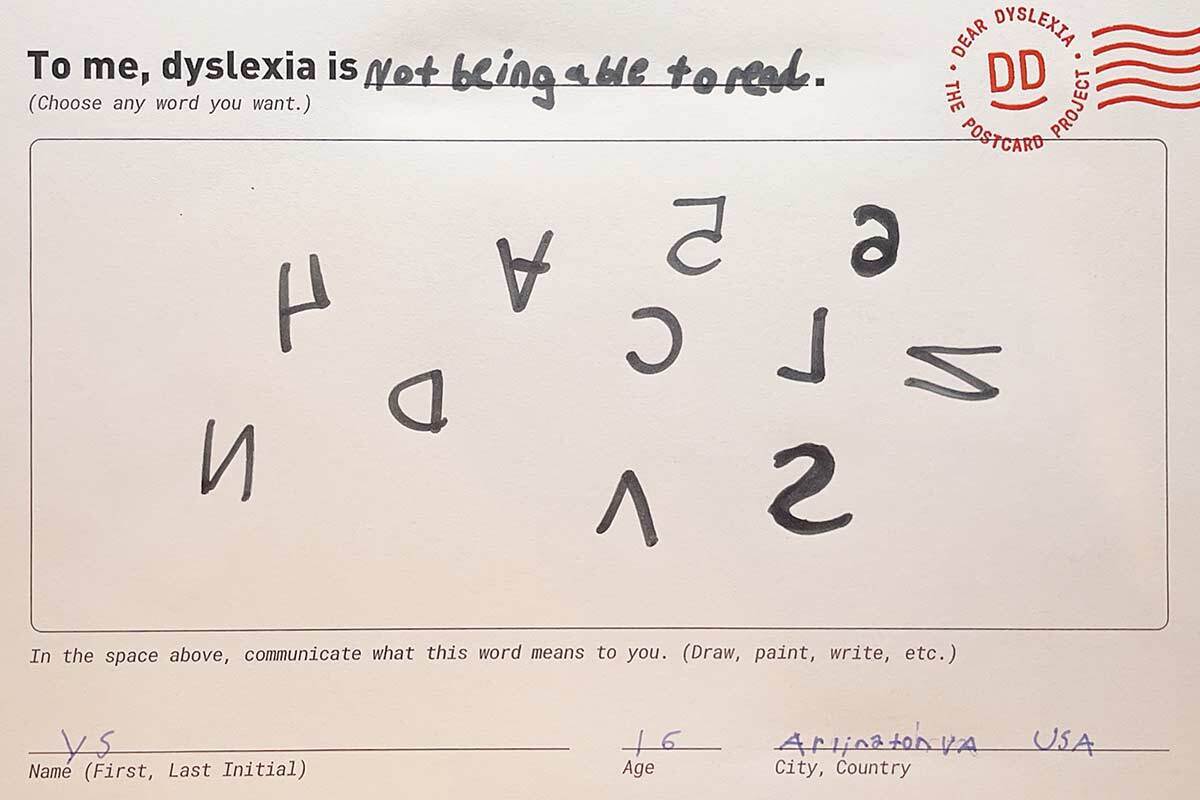 To me, dyslexia is Not being able to read.
(Choose any word you want.)
• DEAR DYSLEXIA • THE POSTCARD PROJECT
DD
A
C
D
N
V
In the space above, communicate what this word means to you. (Draw, paint, write, etc.)
YS 16 Arlinaton VA USA
Name (First, Last Initial) Age City, Country